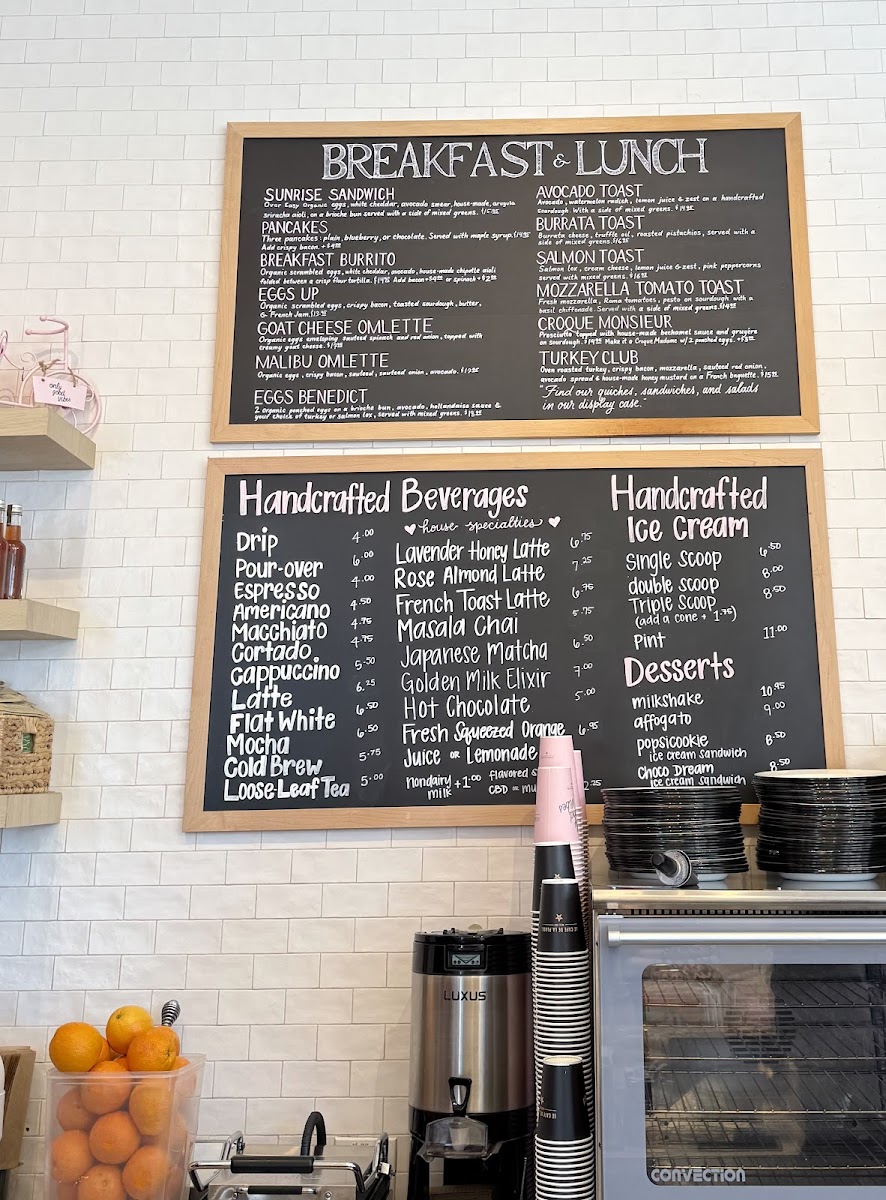 BREAKFAST & LUNCH
SUNRISE SANDWICH
Over Easy Organic eggs, white cheddar, avocado smear, house-made, arugula
sriracha aioli, on a brioche bun served with a side of mixed greens.
PANCAKES
Three pancakes: plain, blueberry, or chocolate. Served with maple syrup.
Add crispy bacon.
BREAKFAST BURRITO
Organic scrambled eggs, white cheddar, avocado, house-made chipotle aioli
folded between a crisp flour tortilla. Add bacon or spinach
EGGS UP
Organic scrambled eggs, crispy bacon, toasted sourdough, butter,
& French Jam.
GOAT CHEESE OMLETTE
Organic eggs enveloping sauteed spinach and red onion, topped with
creamy goat cheese.
MALIBU OMLETTE
Organic eggs, crispy bacon, sauteed onion, avocado.
EGGS BENEDICT
2 organic poached eggs on a brioche bun, avocado, hollandaise sauce &
your choice of turkey or Salmon lox, served with mixed greens.
AVOCADO TOAST
Avocado, watermelon radish, lemon juice & zest on a handcrafted
Sourdough. With a side of mixed greens.
BURRATA TOAST
Burrata cheese, truffle oil, roasted pistachios, served with a
side of mixed greens.
SALMON TOAST
Salmon lox, cream cheese, lemon juice & zest, pink peppercorns
served with mixed greens.
MOZZARELLA TOMATO TOAST
Fresh mozzarella, Roma tomatoes, pesto on sourdough with a
basil chiffonade. Served with a side of mixed greens.
CROQUE MONSIEUR
Prosciutto topped with house-made bechamel sauce and gruyère
on sourdough. Make it a Croque Madame w/ 2 poached eggs.
TURKEY CLUB
Oven roasted turkey, crispy bacon, mozzarella, sauteed red onion,
avocado spread & house-made honey mustard on a French baguette.
"Find our quiches, sandwiches, and salads
in our display case."
Handcrafted Beverages
Drip 4.00
Pour-over 6.00
Espresso 4.00
Americano 4.50
Macchiato 4.75
Cortado 4.75
Cappuccino 5.50
Latte 6.25
Flat White 6.50
Mocha 6.50
Cold Brew 5.75
Loose-Leaf Tea 5.00
house specialties
Lavender Honey Latte 6.75
Rose Almond Latte 7.25
French Toast Latte 6.75
Masala Chai 5.75
Japanese Matcha 6.50
Golden Milk Elixir 7.00
Hot Chocolate 5.00
Fresh Squeezed Orange 6.95
Juice or Lemonade
nondairy milk +1.00
flavored
CBD or
Handcrafted
Ice Cream
Single Scoop 6.50
double scoop 8.00
Triple Scoop 8.50
(add a cone + 1.75)
Pint 11.00
Desserts
milkshake 10.95
affogato 9.00
popsicookie 8.50
ice cream sandwich
Choco Dream 8.50
ice cream sandwich
only
good
vibes
LUXUS
CONVECTION